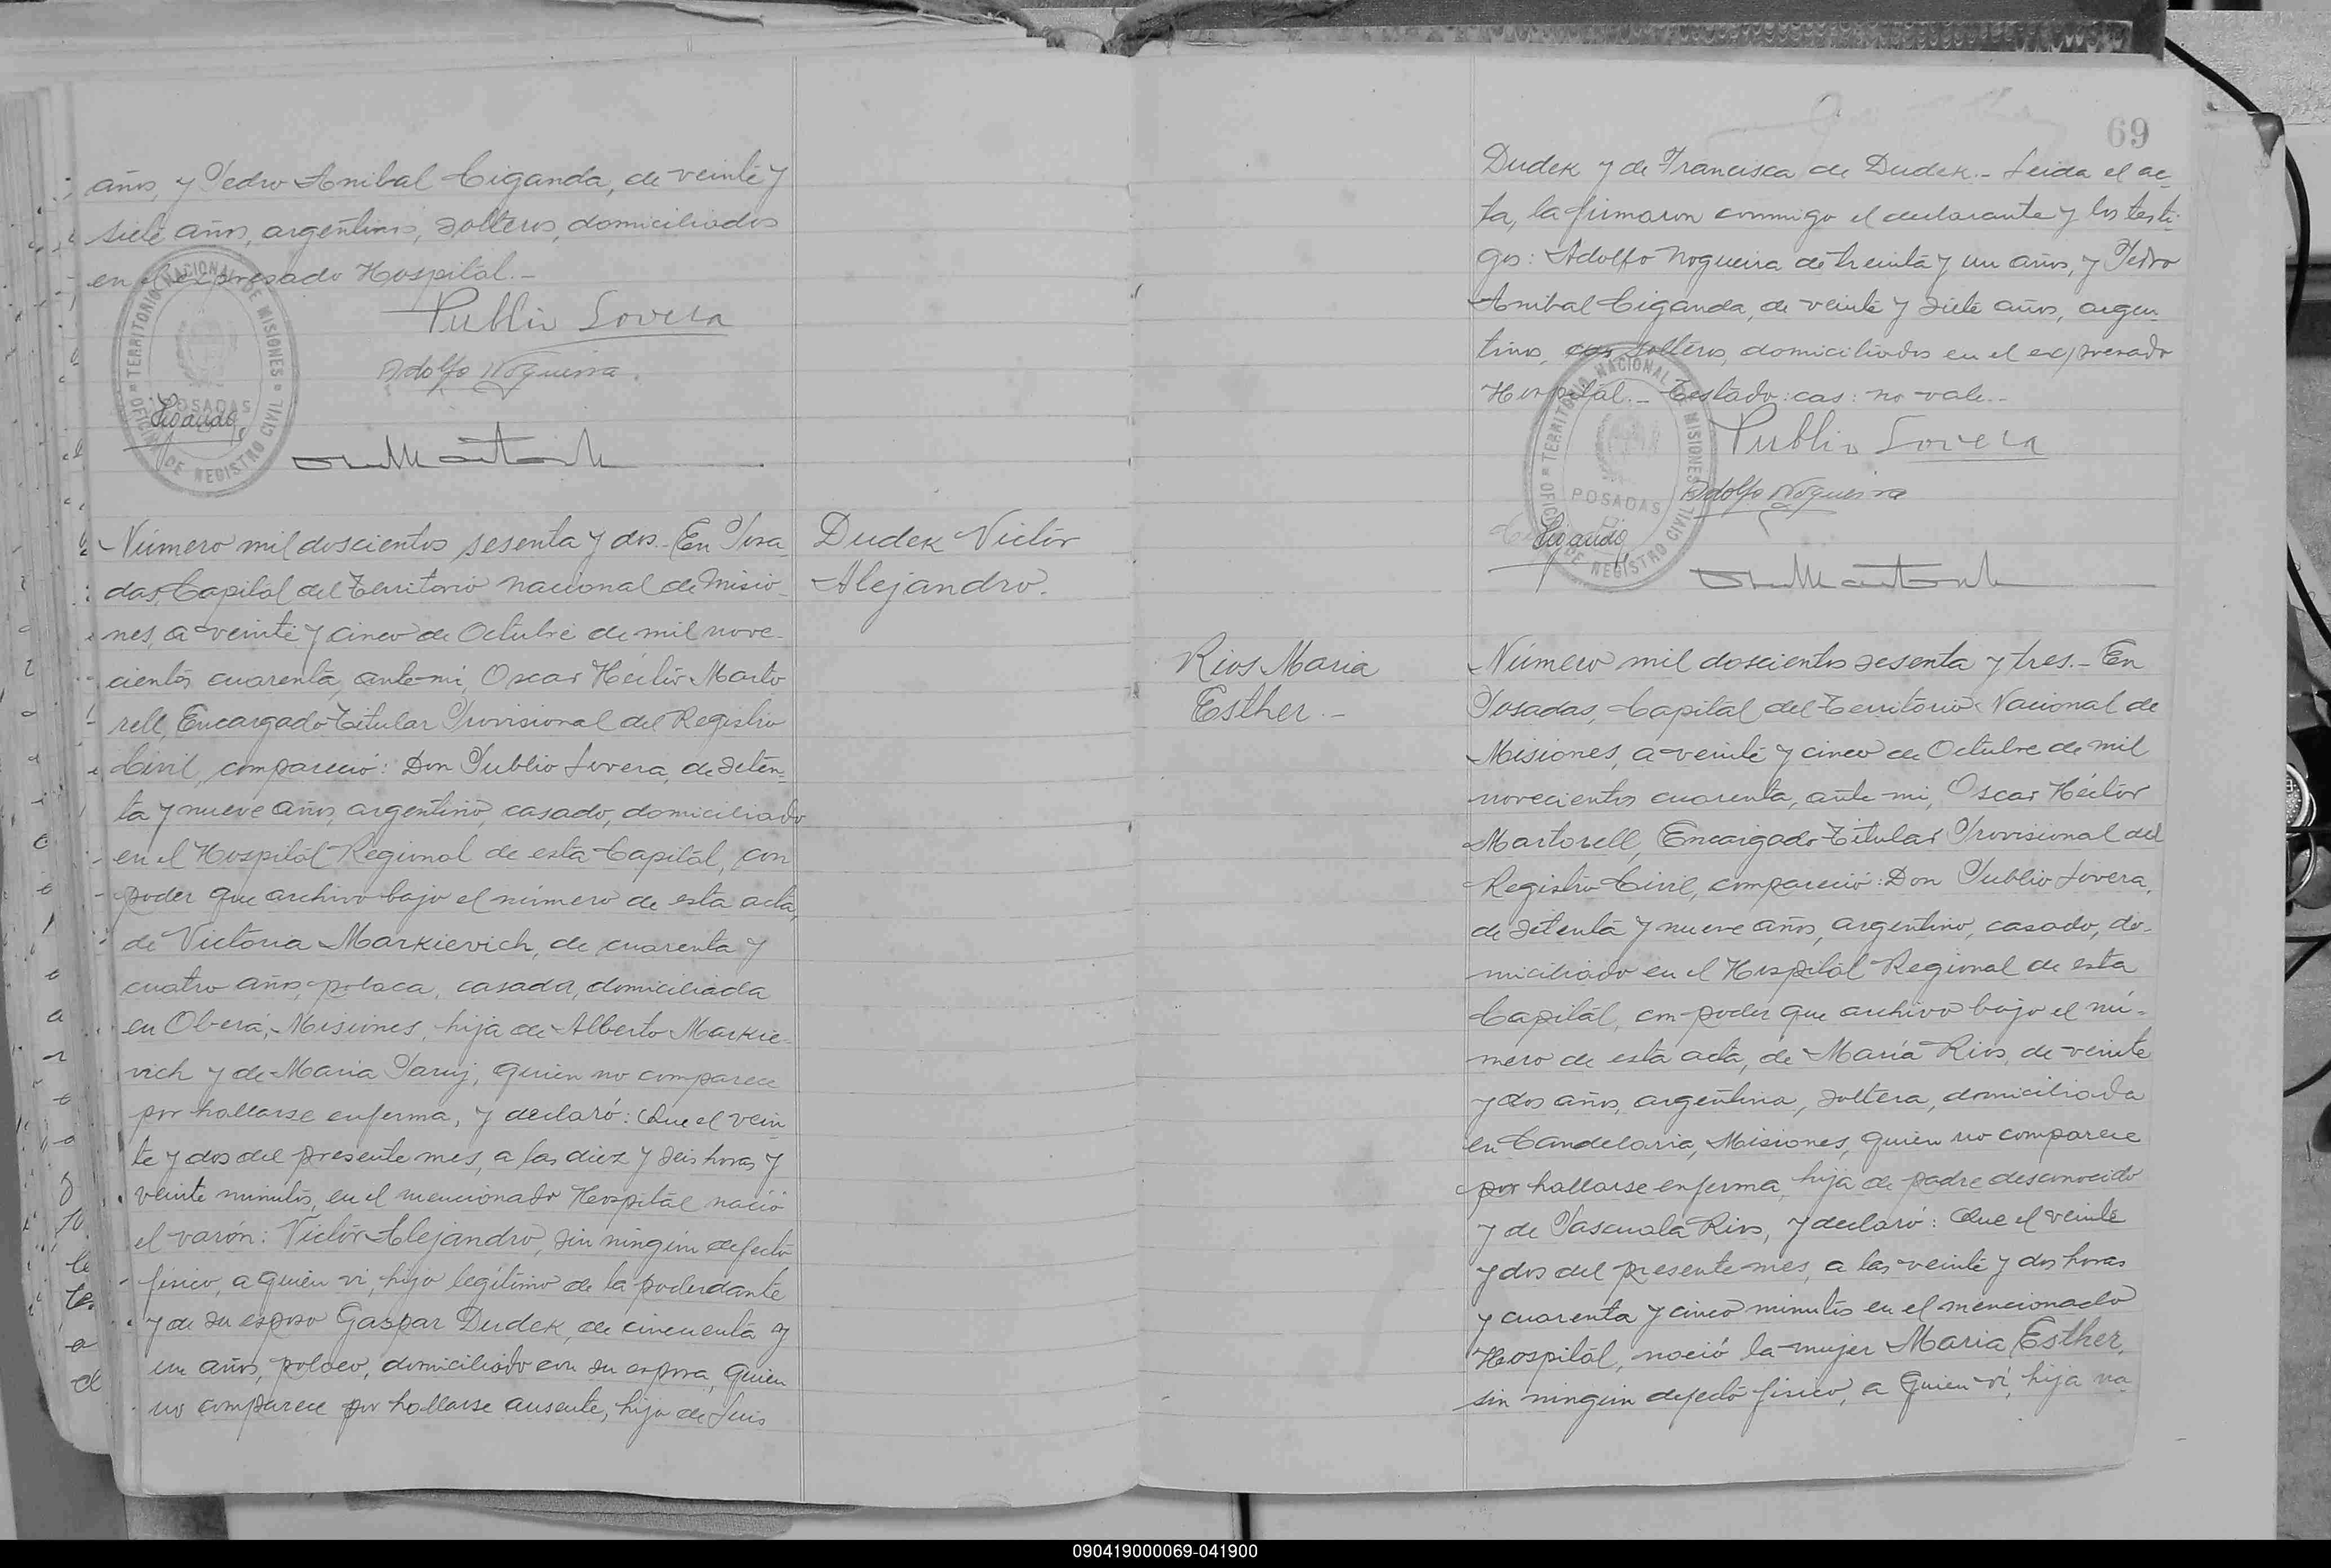 años, y Pedro Anibal Ciganda, de veinte y
siete años, argentinos, solteros, domiciliados
en el expresado Hospital.-
Publio Lovera
Adolfo Nogueira.
TERRITORIO NACIONAL DE MISIONES
POSADAS
OFICINA DE REGISTRO CIVIL
Número mil doscientos sesenta y dos.- En Posa-
das, Capital del Territorio Nacional de Misio-
nes, a veinte y cinco de Octubre de mil nove-
cientos cuarenta, ante mi, Oscar Héctor Marto-
rell, Encargado Titular Provisional del Registro
Civil, compareció: Don Publio Lovera, de seten-
ta y nueve años, argentino, casado, domiciliado
en el Hospital Regional de esta Capital, con
poder que archivo bajo el número de esta acta,
de Victoria Markievich, de cuarenta y
cuatro años, polaca, casada, domiciliada
en Oberá, Misiones, hija de Alberto Markie-
vich y de Maria Paruj, quien no comparece
por hallarse enferma, y declaró: Que el vein-
te y dos del presente mes, a las diez y seis horas y
veinte minutos, en el mencionado Hospital nació
el varón: Victor Alejandro, sin ningún defecto
fisico, a quien vi, hijo legitimo de la poderdante
y de su esposo Gaspar Dudek, de cincuenta y
un años, polaco, domiciliado con su esposa, quien
no comparece por hallarse ausente, hijo de Luis
Dudek Victor
Alejandro.
69
Dudek y de Francisca de Dudek.- Leida el ac-
ta, la firmaron conmigo el declarante y los testi-
gos: Adolfo Nogueira de treinta y un años, y Pedro
Anibal Ciganda, de veinte y siete años, argen-
tinos, cas solteros, domiciliados en el expresado
Hospital.- Testado: cas: no vale.-
Publio Lovera
Adolfo Nogueira
TERRITORIO NACIONAL DE MISIONES
POSADAS
OFICINA DE REGISTRO CIVIL
Rios Maria
Esther.-
Número mil doscientos sesenta y tres.- En
Posadas, Capital del Territorio Nacional de
Misiones, a veinte y cinco de Octubre de mil
novecientos cuarenta, ante mi, Oscar Héctor
Martorell, Encargado Titular Provisional del
Registro Civil, compareció: Don Publio Lovera,
de setenta y nueve años, argentino, casado, do-
miciliado en el Hospital Regional de esta
Capital, con poder que archivo bajo el nú-
mero de esta acta, de María Rios, de veinte
y dos años, argentina, soltera, domiciliada
en Candelaria, Misiones, quien no comparece
por hallarse enferma, hija de padre desconocido
y de Pascuala Rios, y declaró: Que el veinte
y dos del presente mes, a las veinte y dos horas
y cuarenta y cinco minutos en el mencionado
Hospital, nació la mujer Maria Esther,
sin ningun defecto fisico, a quien vi, hija na-
090419000069-041900